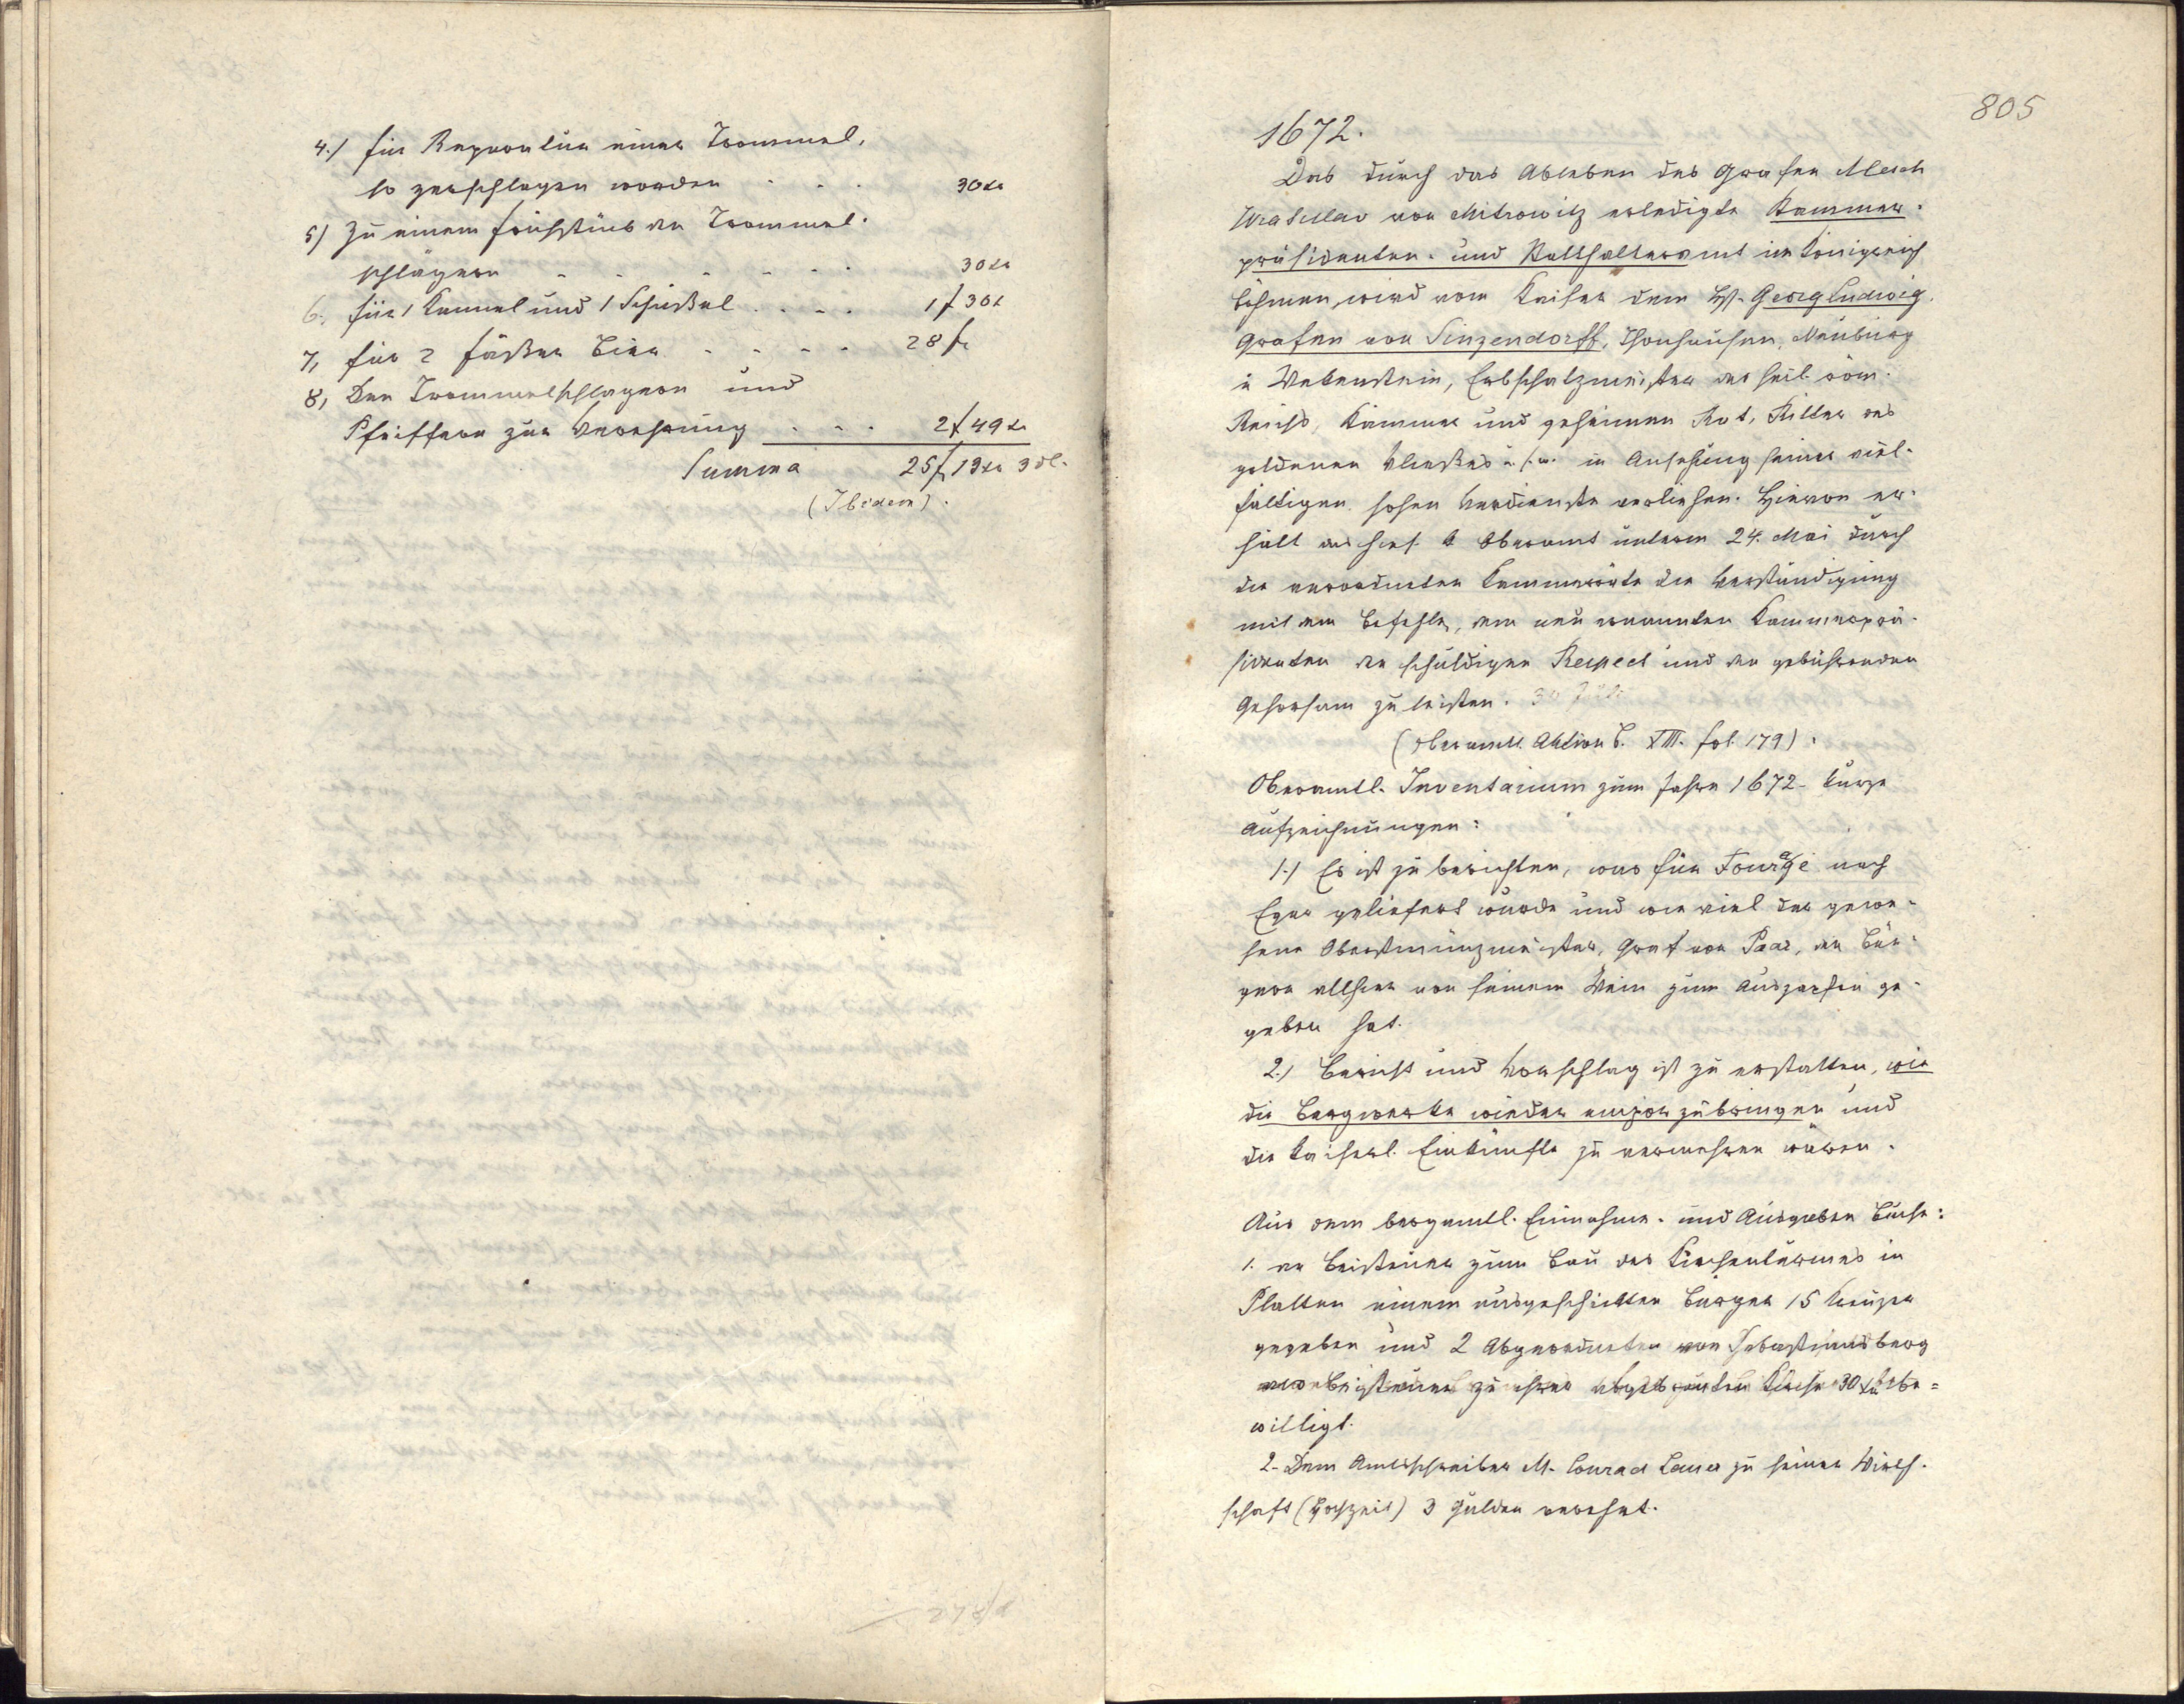 4./ für Reparatur einer Trommel,
so zerschlagen worden - - . 30 kr
5/ Zu einem Frühstück den Trommel-
schlägern - - - - - . 30 kr
6. für 1 Kannel und 1 Schüßel . . - . 1 f 30 x
7, für 2 Fäßer Bier - - - - 28 f
8, Den Trommelschlagern und
Pfeiffern zur Verehrung - - . 2 f 49 kr
Summa 25 f 19 kr 3 dl.
(Ibidem).
805
1672.
Das durch das Ableben des Grafen Alesch
Wratislav von Mitrowitz erledigte Kammer-
präsidenten- und Statthalteramt im Königreich
Böhmen, wird vom Kaiser dem H. Georg Ludwig,
Grafen von Sinzendorff, Thonhausen, Neuburg
u. Wekenstein, Erbschatzmeister des heil. röm.
Reichs, Kämmer und geheimen Rat, Ritter des
goldenen Vließes u.s.w. in Ansehung seiner viel-
fältigen hohen Verdienste verliehen. Hievon er-
hält das hies. Oberamt unterm 24. Mai durch
die verordneten Kammerräte die Verständigung
mit dem Befehle, dem neu ernannten Kammerprä-
sidenten den schuldigen Respect und den gebührenden
Gehorsam zu leisten. 30 Juli
(Oberamtl. Aktion B. XIII. fol. 179).
Oberamtl. Inventarium zum Jahre 1672 - kurze
Aufzeichnungen:
1./ Es ist zu berichten, was für Fourage nach
Eger geliefert wurde und wie viel der gewe-
sene Oberstmünzmeister, Graf von Paar, den Bür-
gern allhier von seinem Wein zum Auszapfen ge-
geben hat.
2./ Bericht und Vorschlag ist zu erstatten, wie
die Bergwerke wieder empor zubringen und
die kaiserl. Einkünfte zu vermehren wären.
Aus dem bergamtl. Einnahme- und Ausgaben Buche:
1. an Beisteuer zum Bau des Kirchenturmes in
Platten einem ausgeschickten Bürger 15 Kreuzer
gegeben und 2 Abgeordneten von Sebastiansberg
als Beisteuer zu ihrer abgebrannten Kirche 30 kr be=
willigt.
2- Dem Amtsschreiber M. Conrad Lauer zu seiner Wirth-
schaft (Hochzeit) 3 Gulden verehrt.